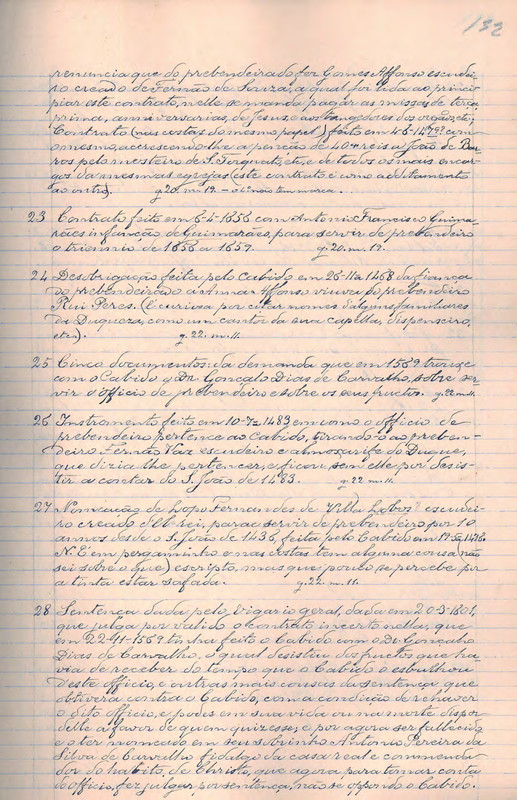 132
renuncia que do prebendeirado fez Gomes Affonso escudei-
ro creado de Fernão de Souza, a qual foi lida ao princi-
piar este contrato, nelle se manda pagar as missas de terça,
prima, anniversarias, de Jesus, e aos tangedores dos orgãos etc;
Contrato (nas costas do mesmo papel) feito em 4-6-1479? com
o mesmo, accrescendo-lhe a porção de 40 reis a João de Bar-
ros pelo mesteiro de S. Torquato, etc, e de todos os mais encar-
gos da mesma egreja (este contrato é como additamento
ao outro). g 20. m. 19. - o 1º não tem marca...
23 Contrato feito em 6-4-1656 com Antonio Francisco Guima-
rães infanção de Guimarães, para servir de prebendeiro
o triennio de 1656 a 1659. g. 20. m. 19.
24 Desobrigação feita pelo Cabido em 26-11-1468 da fiança
do prebendeirado a Anna Affonso viuva do prebendeiro
Rui Peres. (É curiosa por citar nomes d'alguns familiares
da Duqueza, como um cantor da sua capella, dispenseiro,
etc). g. 22. m. 11.
25 Cinco documentos: da demanda que em 1569 trouxe
com o Cabido o Dr. Gonçalo Dias de Carvalho, sobre ser-
vir o officio de prebendeiro e sobre os seus fructos. g. 22. m. 11.
26 Instrumento feito em 10-7-1483 em como o officio de
prebendeiro pertence ao Cabido, tirando-o ao preben-
deiro Fernão Vaz escudeiro e almoxarife do Duque,
que dizia lhe pertencer, e ficou sem elle por desis-
tir a contar do S. João de 1483. g. 22. m. 11.
27 Nomeação de Lopo Fernandes de Villa Lobos escudei-
ro creado d'El-rei, para servir de prebendeiro por 10
annos desde o S. João de 1436, feita pelo Cabido em 1436.
N. É em pergaminho e nas costas tem alguma cousa (não
sei sobre o que) escripto, mas que pouco se percebe por
a tinta estar safada. g. 22. m. 11.
28 Sentença dada pelo vigario geral, dada em 20-3-1601,
que julga por valido o contrato inserto nella, que
em 22-11-1569 tinha feito o Cabido com o Dr. Gonçalo
Dias de Carvalho, o qual desistiu dos fructos que ha-
via de receber do tempo que o Cabido o esbulhou
d'este officio, e outras mais cousas da sentença que
obtivera contra o Cabido, com a condição de rehaver
o dito officio, e poder em sua vida ou na morte dispor
delle a favor de quem quizesse, e por agora ser fallecido
e o ter nomeado em seu sobrinho Antonio Pereira da
Silva de Carvalho fidalgo da casa real e commenda-
dor do habito de Christo, que agora para tomar conta
do officio, fez julgar por sentença, não se oppondo o Cabido.